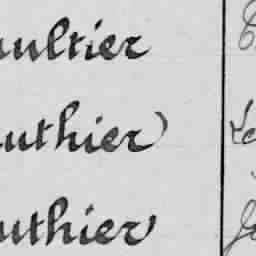 aultier
authier)
uthier